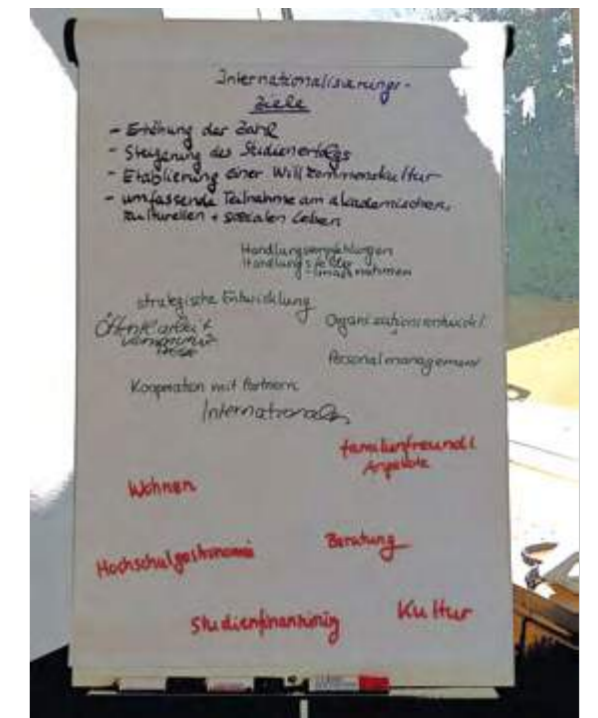 Internationalisierungs-
Ziele
- Erhöhung der Zahl
- Steigerung des Studienerfolgs
- Etablierung einer Willkommenskultur
- umfassende Teilnahme am akademischen,
kulturellen + sozialen Leben
Handlungsempfehlungen
Handlungsfelder
strategische Entwicklung
Öffentl.arbeit
Organisationsentwickl.
Personalmanagement
Kooperation mit Partnern
Internationales
familienfreundl.
Angebote
Wohnen
Beratung
Hochschulgastronomie
Kultur
Studienfinanzierung